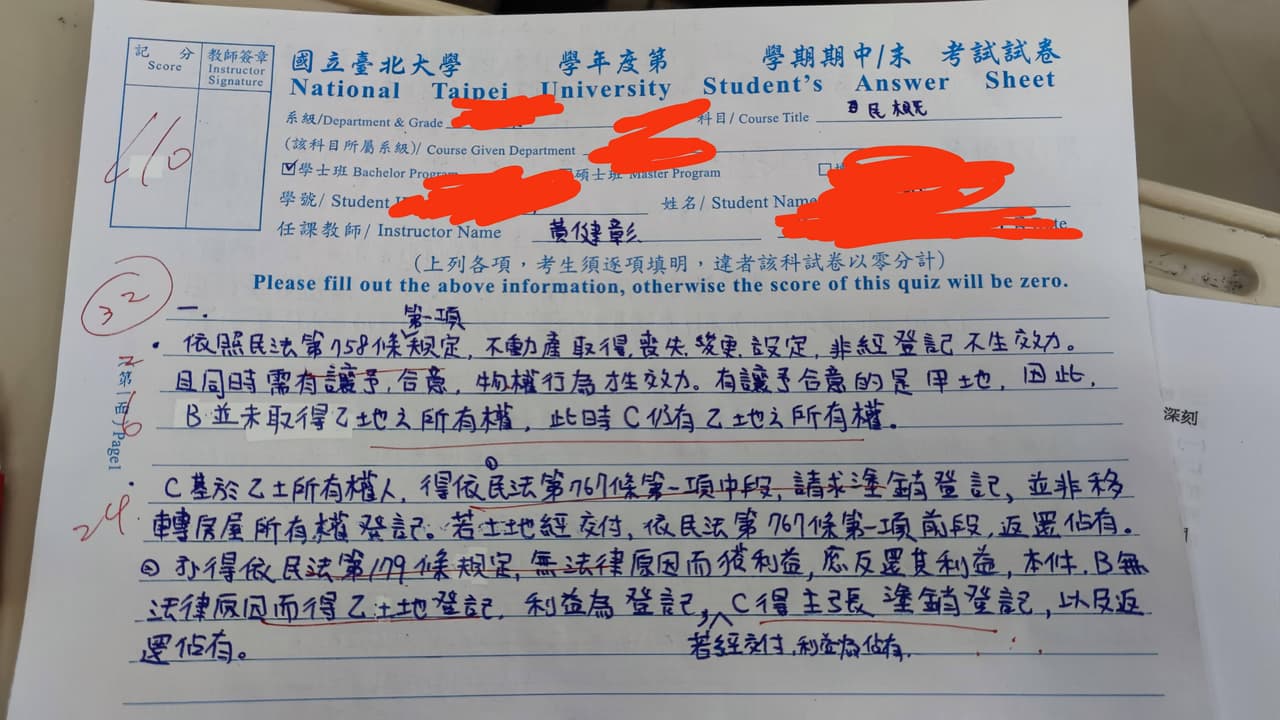 記 分
Score
教師簽章
Instructor
Signature
國立臺北大學 學年度第 學期期中/末 考試試卷
National Taipei University Student's Answer Sheet
系級/Department & Grade
科目/ Course Title 民概
(該科目所屬系級)/ Course Given Department
學士班 Bachelor Program 碩士班 Master Program
學號/ Student
姓名/ Student Name
任課教師/ Instructor Name 黃健彰
(上列各項,考生須逐項填明,違者該科試卷以零分計)
Please fill out the above information, otherwise the score of this quiz will be zero.
32
一.
第一項
• 依照民法第758條規定, 不動產取得, 喪失, 變更, 設定, 非經登記不生效力。
且同時需有讓予, 合意, 物權行為才生效力。有讓予合意的是甲地, 因此,
B並未取得乙地之所有權, 此時C仍有乙地之所有權。
第一面/Page1
16
• C基於乙土所有權人, 得依①民法第767條第一項中段, 請求塗銷登記, 並非移
24
轉房屋所有權登記。若土地經交付, 依民法第767條第一項前段, 返還佔有。
② 亦得依民法第179條規定, 無法律原因而獲利益, 應反還其利益, 本件, B無
法律原因而得乙土地登記, 利益為登記, C得主張塗銷登記, 以及返
還佔有。 若經交付, 利益為佔有.
深刻